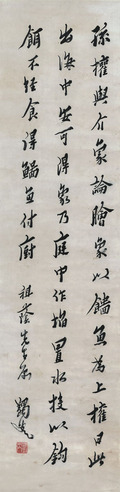 孫權與介象論膾象以鯔魚為上權曰此
出海中安可得象乃庭中作埳置水投以鉤
餌不經食得鯔魚付廚
祖蔭先生屬
蠲叟